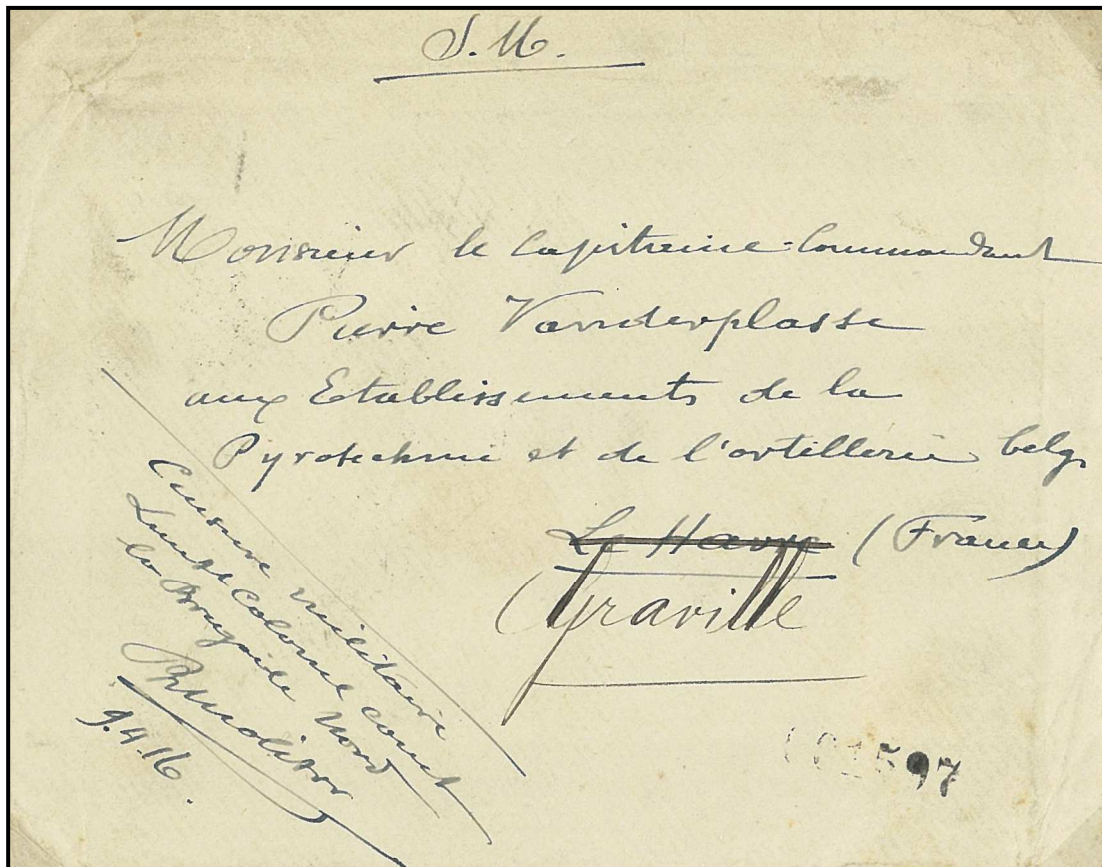 S.M.
Monsieur le Capitaine-Commandant
Pierre Vanderplasse
aux Etablissements de la
Pyrotechnie et de l'artillerie belge
Le Havre (France)
Graville
Censure militaire
Lieutt Colonel Comdt
la Brigade Nord
PhMolitor
9.4.16.
597